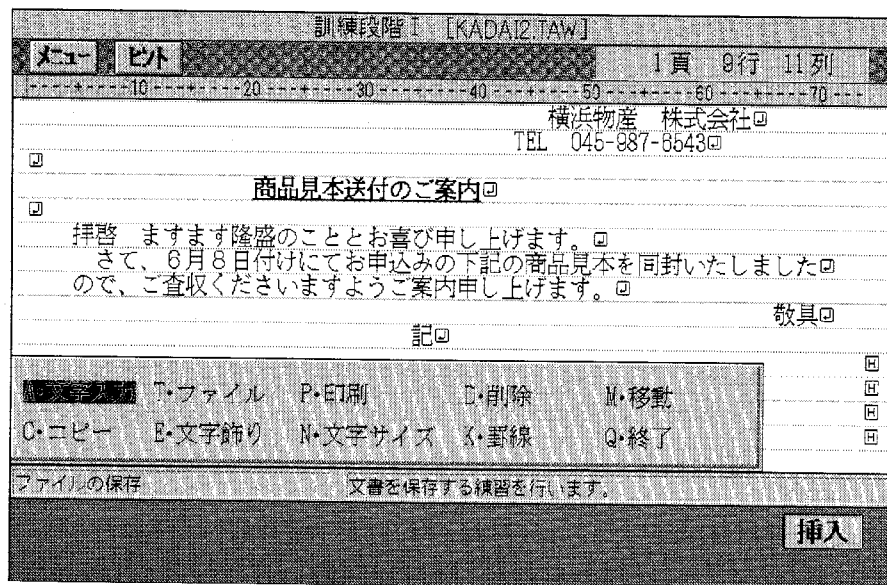 訓練段階Ⅰ [KADAI2.TAW]
メニュー ヒント 1頁 9行 11列
|----+----10---+----20---+----30---+----40---+----50---+----60---+----70---
横浜物産 株式会社
TEL 045-987-6543
商品見本送付のご案内
拝啓 ますます隆盛のこととお喜び申し上げます。
さて、6月8日付けにてお申込みの下記の商品見本を同封いたしました
ので、ご査収くださいますようご案内申し上げます。
敬具
記
文字入力 T・ファイル P・印刷 D・削除 M・移動
C・コピー E・文字飾り N・文字サイズ K・罫線 Q・終了
ファイルの保存 文書を保存する練習を行います。
挿入